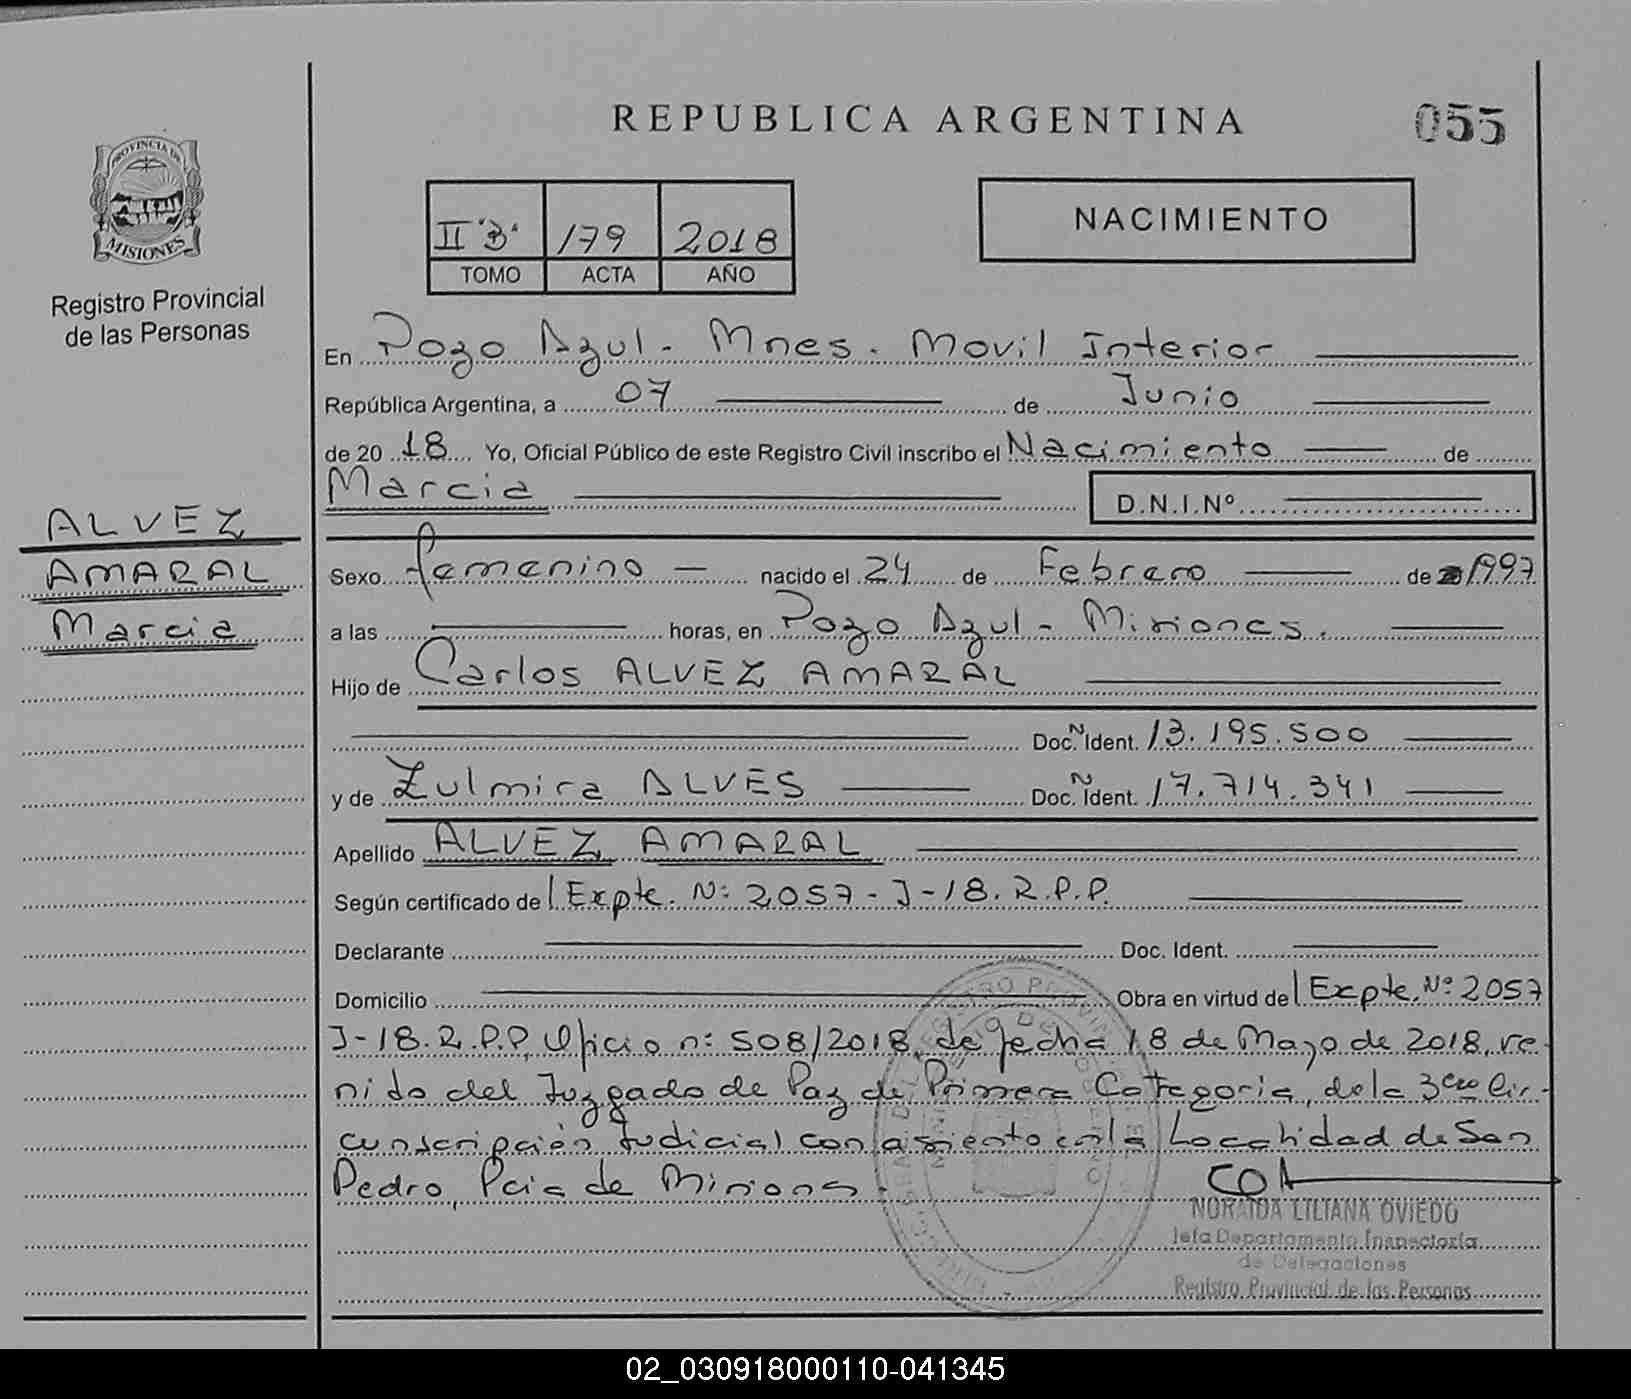 REPUBLICA ARGENTINA
055
PROVINCIA DE
MISIONES
Registro Provincial
de las Personas
II "B" 179 2018
TOMO ACTA AÑO
NACIMIENTO
En Pozo Azul - Mnes. Movil Interior
República Argentina, a 07 de Junio
de 20 18 Yo, Oficial Público de este Registro Civil inscribo el Nacimiento de
Marcia D.N.I.Nº
ALVEZ
AMARAL
Marcia
Sexo femenino nacido el 24 de Febrero de 1997
a las horas, en Pozo Azul - Misiones.
Hijo de Carlos ALVEZ AMARAL
Doc. N Ident. 13.195.500
y de Zulmira ALVES Doc. N Ident. 17.714.341
Apellido ALVEZ AMARAL
Según certificado de Expte. Nº 2057-J-18. R.P.P.
Declarante Doc. Ident.
Domicilio Obra en virtud de Expte. Nº 2057
J-18. R.P.P. Oficio nº 508/2018, de fecha 18 de Mayo de 2018, ve-
nido del Juzgado de Paz de Primera Categoria, de la 3era Cir-
cunscripción Judicial con asiento en la Localidad de San
Pedro, Pcia de Misiones.
NORAIDA LILIANA OVIEDO
Jefa Departamento Inspectoría
de Delegaciones
Registro Provincial de las Personas
02_030918000110-041345